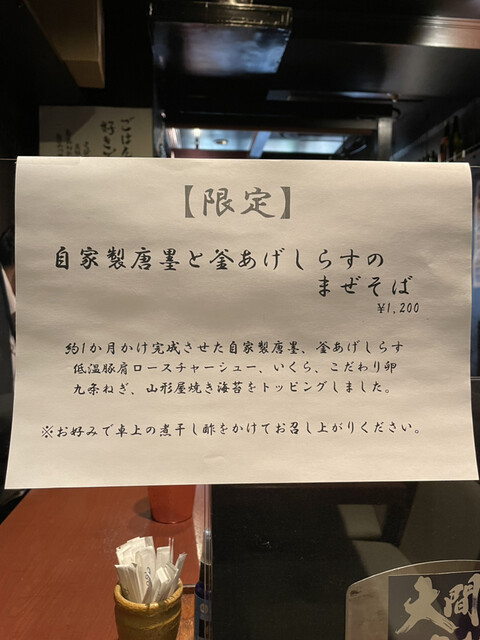 【限定】
自家製唐墨と釜あげしらすの
まぜそば
¥1,200
約1か月かけ完成させた自家製唐墨、釜あげしらす
低温豚肩ロースチャーシュー、いくら、こだわり卵
九条ねぎ、山形屋焼き海苔をトッピングしました。
※お好みで卓上の煮干し酢をかけてお召し上がりください。
大間